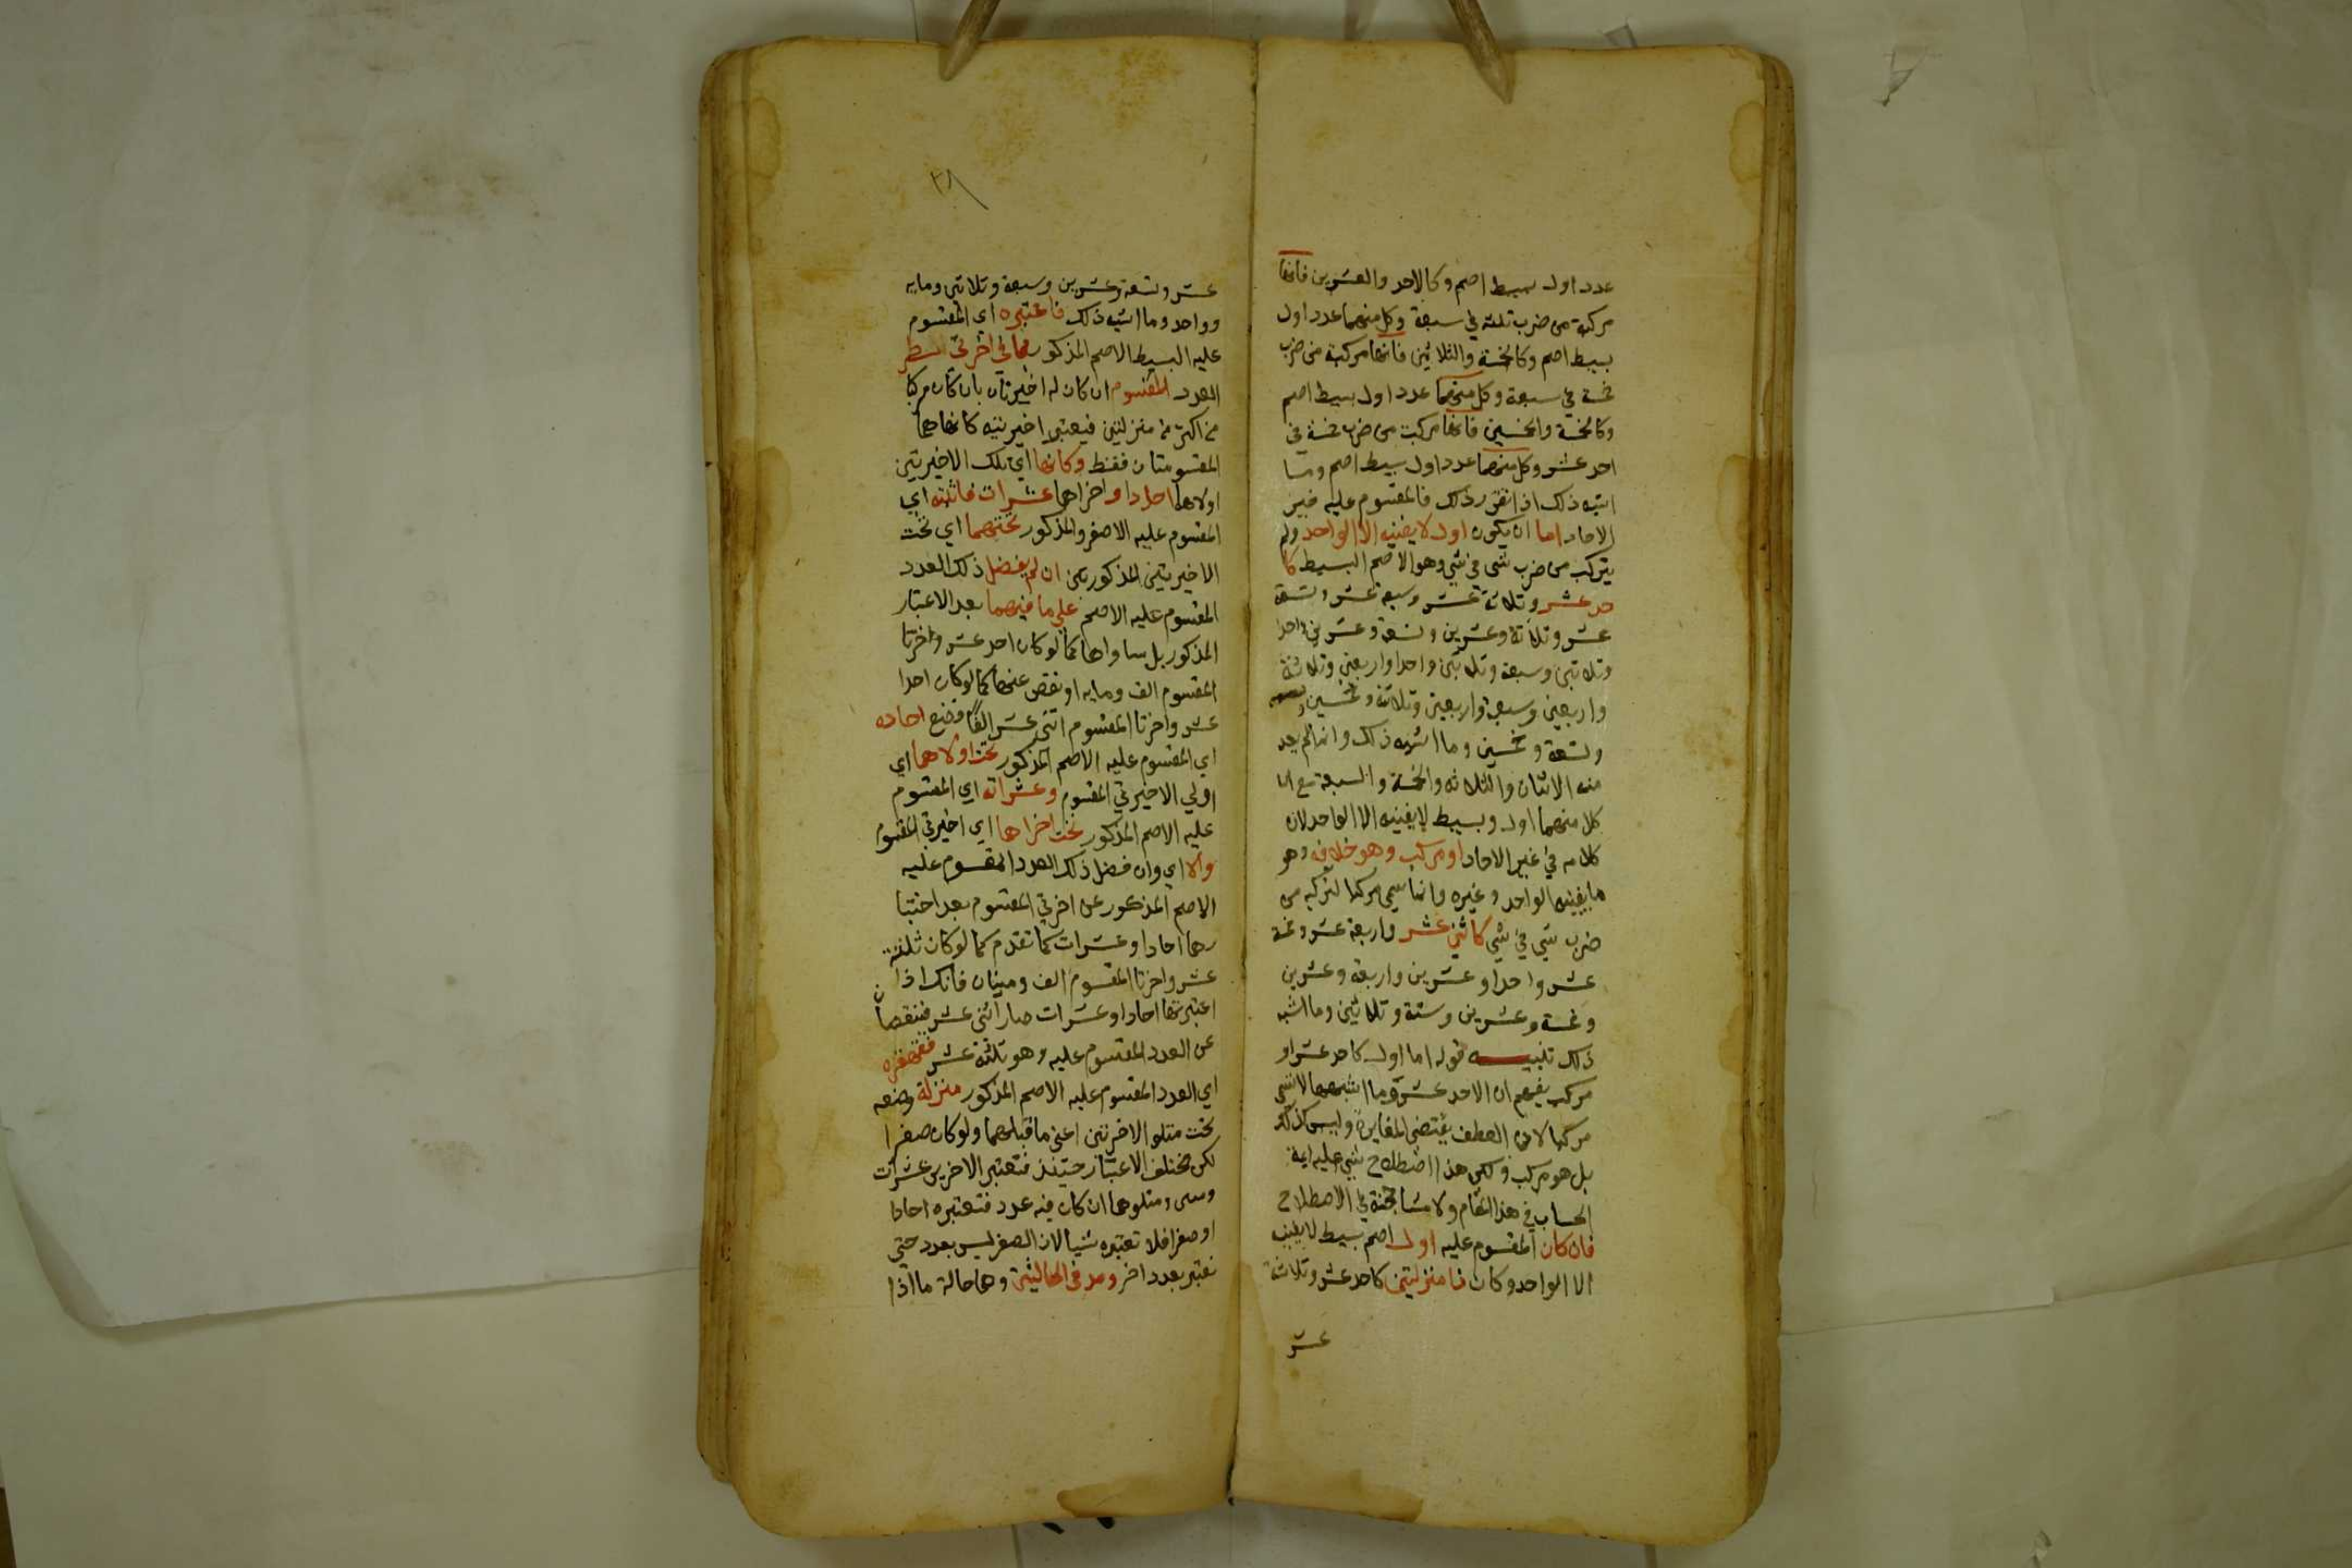 عدد اول بسيط اصم وكالاحد والعشرين فانها
مركبة من ضرب ثلثه في سبعة وكل منهما عدد اول
بسيط اصم وكالخمسة والثلاثين فانها مركبة من ضرب
خمسة في سبعة وكل منهما عدد اول بسيط اصم
وكالخمسة والخمسين فانها مركبة من ضرب خمسة في
احد عشر وكل منهما عدد اول بسيط اصم وما
اشبه ذلك اذا تقرر ذلك فالمقسوم عليه غير
الاحاد اما ان يكون اول لا يفنيه الا الواحد ولم
يتركب من ضرب شي في شي وهو الاصم البسيط كا
حد عشر وثلاثة عشر وسبعة عشر وتسعة
عشر وثلاثة وعشرين وتسعة وعشرين واحدا
وثلاثين وسبعة وثلاثين واحدا واربعين وثلاثة
واربعين وسبعة واربعين وثلاثة وخمسين
وتسعة وخمسين وما اشبه ذلك وانما لم يعد
منه الاثنان والثلاثه والخمسة والسبعة مع ان
كلا منهما اول وبسيط لا يفنيه الا الواحد لان
كلامه في غير الاحاد او مركب وهو خلافه وهو
ما يفنيه الواحد وغيره وانما سمي مركبا لتركبه من
ضرب شي في شي كاثني عشر واربعة عشر وخمسة
عشر واحدا وعشرين واربعة وعشرين
وخمسة وعشرين وستة وثلاثين وما اشبه
ذلك تنبيه قوله اما اول كاحد عشر او
مركب يفهم ان الاحد عشر وما اشبهها لا تسمي
مركبا لان العطف يقتضي المغايرة وليس كذلك
بل هو مركب ولكن هذا اصطلاح بني عليه ايمة
الحساب في هذا المقام ولا مشاححة في الاصطلاح
فان كان المقسوم عليه اول اصم بسيط لا يفنيه
الا الواحد وكان ذا منزلتين كاحد عشر وثلاثة
عشر
٣٨
عشر وتسعة وعشرين وسبعة وثلاثين وماية
وواحد وما اشبه ذلك فاعتبره اي المقسوم
عليه البسيط الاصم المذكور بما في اخرتي سطر
العدد المقسوم ان كان له اخيرتان بان كان مركبا
من اكثر من منزلتين فيعتبر اخيرتيه كانهما هما
المقسومتان فقط وكانها اي تلك الاخيرتين
اولاهما احادا واخراهما عشرات فاثبته اي
المقسوم عليه الاصغر والمذكور تحتهما اي تحت
الاخيرتين المذكورتين ان لم يفضل ذلك العدد
المقسوم عليه الاصم على ما فيهما بعد الاعتبار
المذكور بل ساواهما كما لو كان احد عشر واخرتا
المقسوم الف وماية او نقص عنهما كما لو كان احدا
عشر واخرتا المقسوم اثنى عشر الفا فضع احاده
اي المقسوم عليه الاصم المذكور تحت اولاهما اي
اولي الاخيرتي المقسوم وعشراته اي المقسوم
عليه الاصم المذكور تحت اخراهما اي اخيرتي المقسوم
والا اي وان فضل ذلك العدد المقسوم عليه
الاصم المذكور عن اخرتي المقسوم بعد اختبا
رهما احادا وعشرات كما تقدم كما لو كان ثلثة
عشر واخرتا المقسوم الف وميتان فانك اذا
اعتبرتها احادا وعشرات صارا اثنى عشر فنقصان
عن العدد المقسوم عليه وهو ثلثة عشر فقهقره
اي العدد المقسوم عليه الاصم المذكور منزلة وضعه
تحت متلو الاخرتين اعني ما قبلهما ولو كان صفرا
لكن مختلف الاعتبار حينئذ فتعتبر الاخرين عشرات
ومتلوهما ان كان فيه عدد فتعتبره احادا
او صفرا فلا تعتبره شيا لان الصفر ليس بعدد حتي
نعتبر بعدد اخر ومد في الحالتين وهما حالة ما اذا